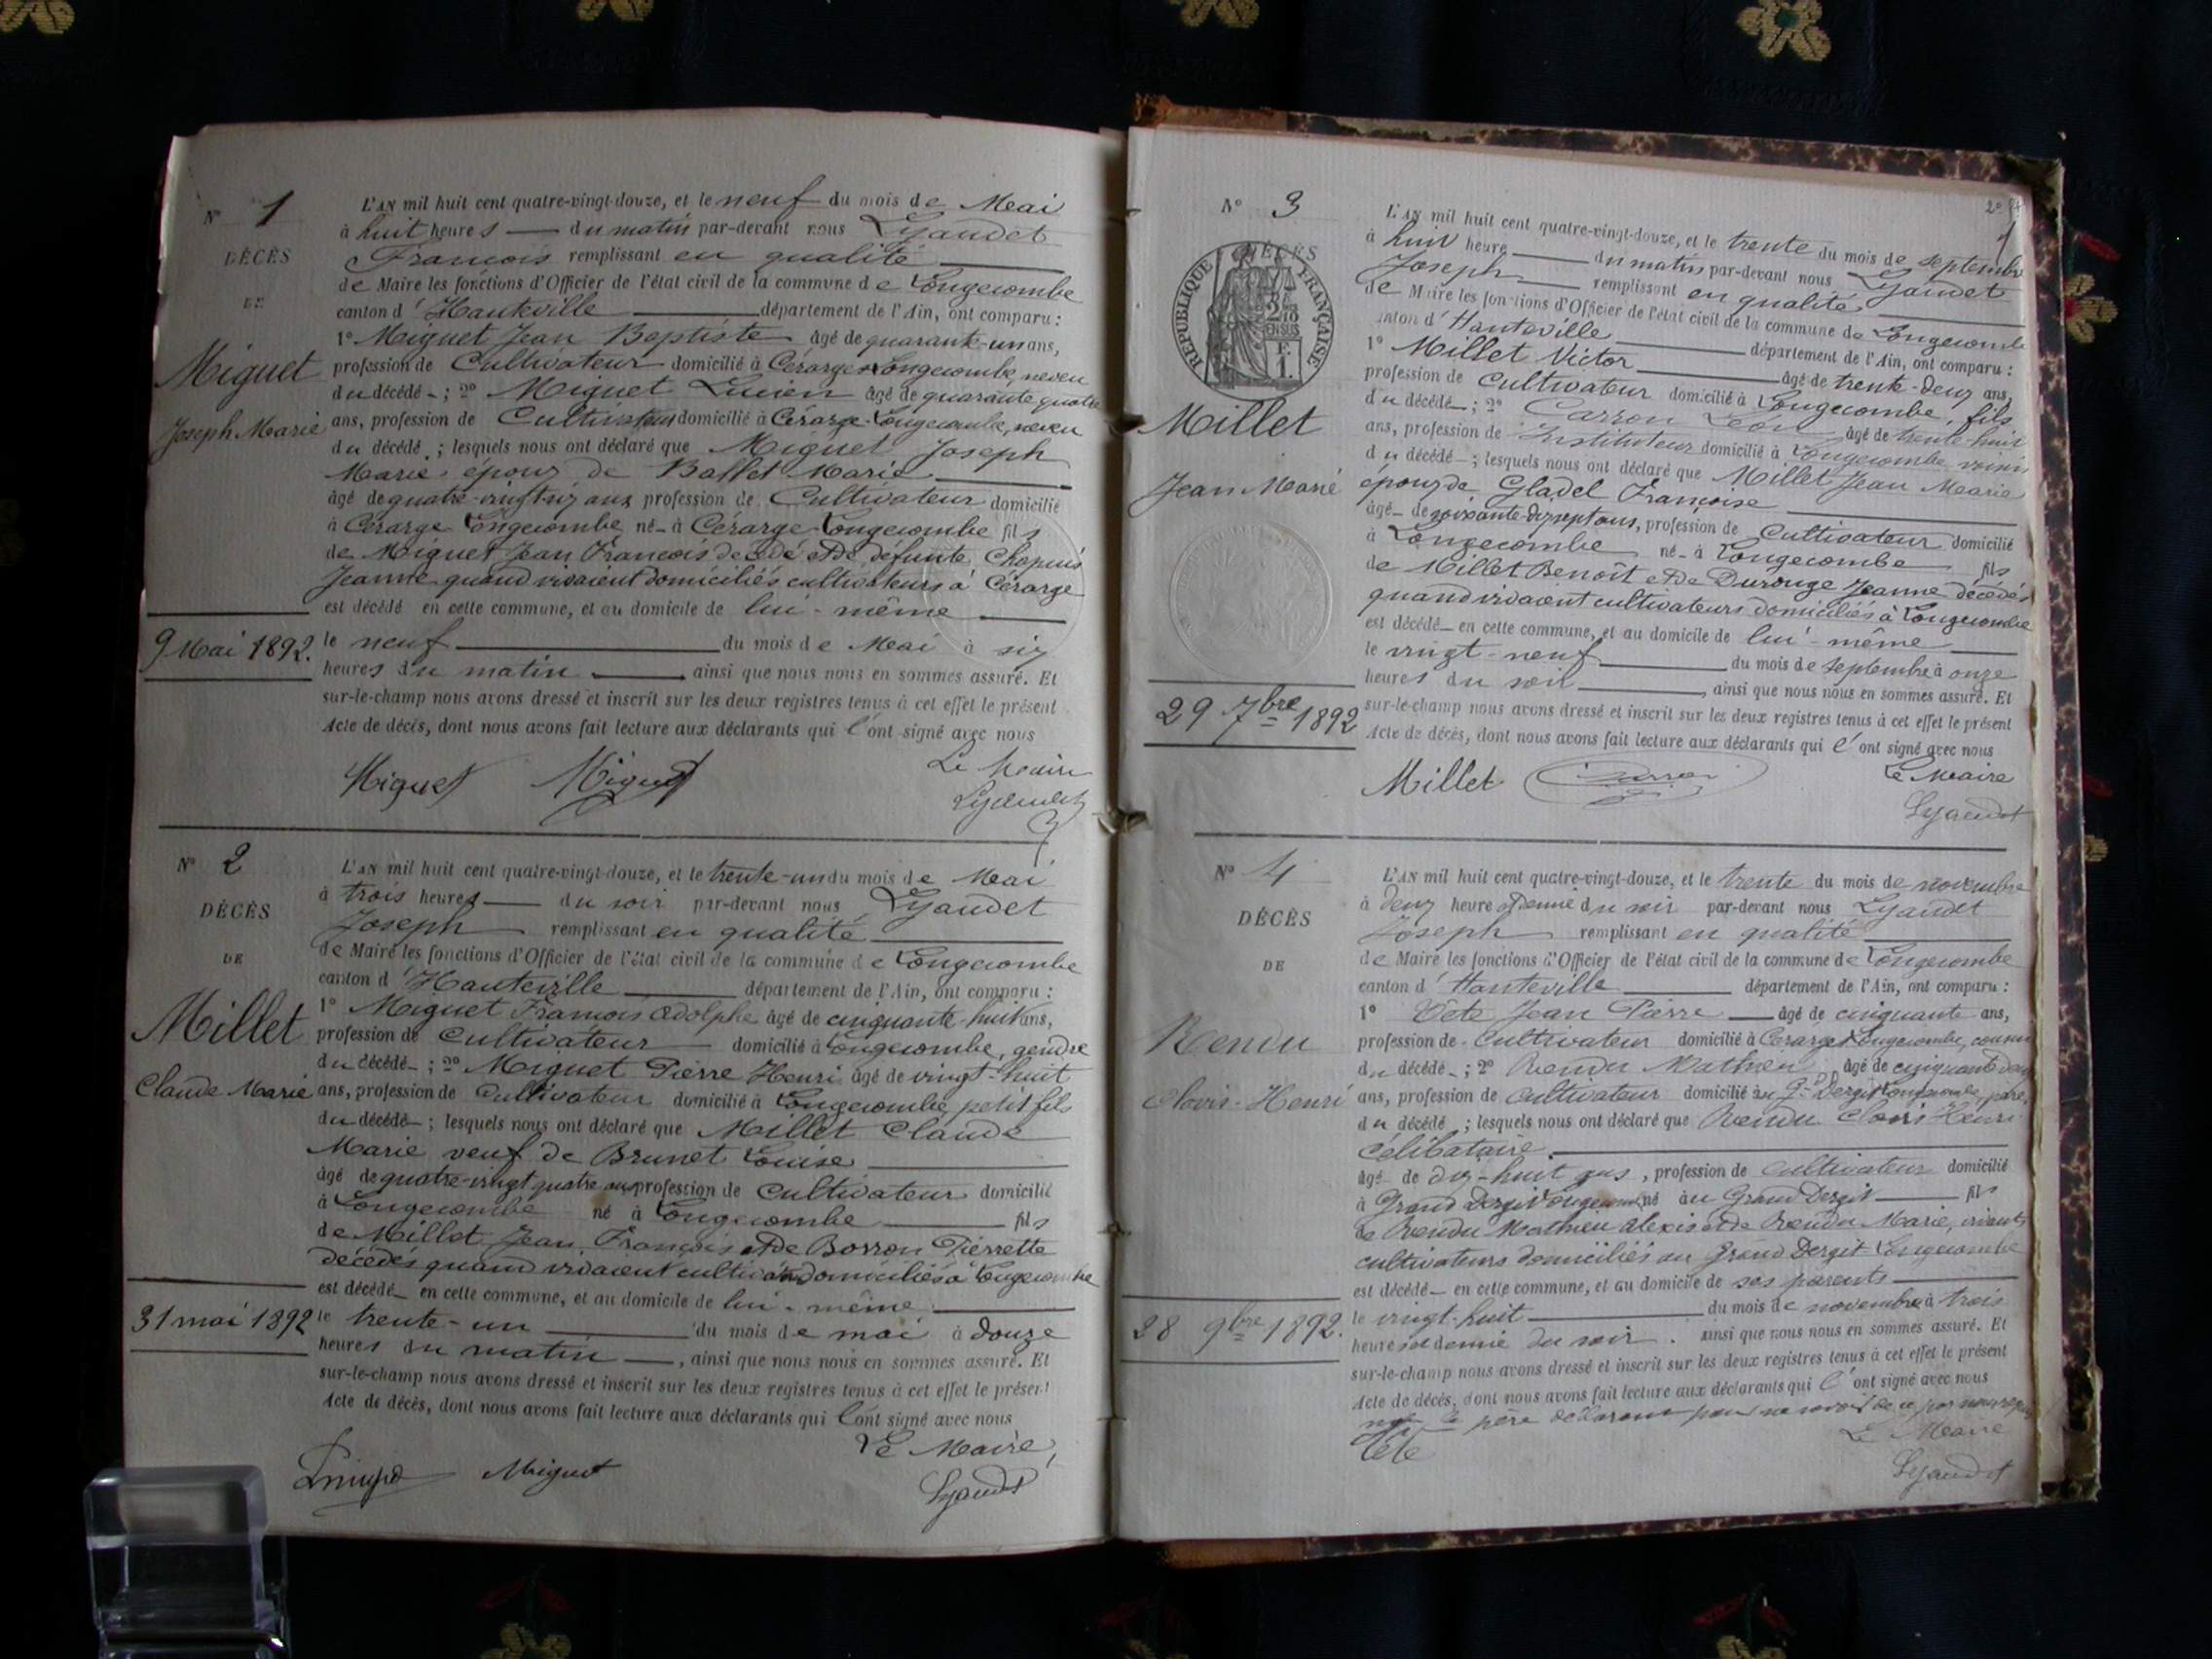 N° 1
DÉCÈS
DE
Miguet
Joseph Marie
9 Mai 1892.
L'AN mil huit cent quatre-vingt-douze, et le neuf du mois de Mai
à huit heures — du matin par-devant nous Lyaudet
François remplissant en qualité
de Maire les fonctions d'Officier de l'état civil de la commune de Longecombe
canton d'Hauteville département de l'Ain, ont comparu :
1° Miguet Jean Baptiste âgé de quarante-un ans,
profession de Cultivateur domicilié à Cérarge Longecombe, neveu
du décédé - ; 2° Miguet Lucien âgé de quarante quatre
ans, profession de Cultivateur domicilié à Cérarge-Longecombe, neveu
du décédé ; lesquels nous ont déclaré que Miguet Joseph
Marie époux de Ballet Marie
âgé de quatre-vingt-six ans profession de Cultivateur domicilié
à Cérarge Longecombe né - à Cérarge-Longecombe fils
de Miguet Jean François décédé et de défunte Chapuis
Jeanne quand vivaient domiciliés cultivateurs à Cérarge
est décédé en cette commune, et au domicile de lui-même
le neuf du mois de Mai à six
heures du matin ainsi que nous nous en sommes assuré. Et
sur-le-champ nous avons dressé et inscrit sur les deux registres tenus à cet effet le présent
Acte de décès, dont nous avons fait lecture aux déclarants qui l'ont signé avec nous
Miguet Miguet Le Maire
Lyaudet
N° 2
DÉCÈS
DE
Millet
Claude Marie
31 mai 1892
L'AN mil huit cent quatre-vingt-douze, et le trente-un du mois de Mai
à trois heures — du soir par-devant nous Lyaudet
Joseph remplissant en qualité
de Maire les fonctions d'Officier de l'état civil de la commune de Longecombe
canton d'Hauteville département de l'Ain, ont comparu :
1° Miguet François Adolphe âgé de cinquante-huit ans,
profession de Cultivateur domicilié à Longecombe, gendre
du décédé - ; 2° Miguet Pierre Henri âgé de vingt-huit
ans, profession de Cultivateur domicilié à Longecombe, petit fils
du décédé - ; lesquels nous ont déclaré que Millet Claude
Marie veuf de Brunet Louise
âgé de quatre-vingt quatre ans profession de Cultivateur domicilié
à Longecombe né à Longecombe fils
de Millet Jean François et de Borron Pierrette
décédés quand vivaient domiciliés à Longecombe
est décédé - en cette commune, et au domicile de lui-même
le trente-un du mois de mai à douze
heures du matin —, ainsi que nous nous en sommes assuré. Et
sur-le-champ nous avons dressé et inscrit sur les deux registres tenus à cet effet le présent
Acte de décès, dont nous avons fait lecture aux déclarants qui l'ont signé avec nous
Le Maire,
Miguet Lyaudet
2e
N° 3
DÉCÈS
RÉPUBLIQUE FRANÇAISE
Millet
Jean Marie
29 7bre 1892
L'AN mil huit cent quatre-vingt-douze, et le trente du mois de septembre
à huit heure — du matin par-devant nous Lyaudet
Joseph remplissant en qualité
de Maire les fonctions d'Officier de l'état civil de la commune de Longecombe
canton d'Hauteville département de l'Ain, ont comparu :
1° Millet Victor âgé de trente-deux ans,
profession de Cultivateur domicilié à Longecombe, fils
du décédé - ; 2° Carron Léon âgé de trente-huit
ans, profession de Instituteur domicilié à Longecombe voisin
du décédé - ; lesquels nous ont déclaré que Millet Jean Marie
époux de Gladel Françoise
âgé - de soixante-dix sept ans, profession de Cultivateur domicilié
à Longecombe né - à Longecombe fils
de Millet Benoît et de Durouge Jeanne décédés
quand vivaient cultivateurs domiciliés à Longecombe
est décédé - en cette commune, et au domicile de lui-même
le vingt-neuf du mois de septembre à onze
heures du soir, ainsi que nous nous en sommes assuré. Et
sur-le-champ nous avons dressé et inscrit sur les deux registres tenus à cet effet le présent
Acte de décès, dont nous avons fait lecture aux déclarants qui l'ont signé avec nous
Millet Carron Le Maire
Lyaudet
N° 4
DÉCÈS
DE
Rendu
Clovis-Henri
28 9bre 1892.
L'AN mil huit cent quatre-vingt-douze, et le trente du mois de novembre
à deux heure et demie du soir par-devant nous Lyaudet
Joseph remplissant en qualité
de Maire les fonctions d'Officier de l'état civil de la commune de Longecombe
canton d'Hauteville département de l'Ain, ont comparu :
1° Tête Jean Pierre — âgé de cinquante ans,
profession de Cultivateur domicilié à Cérarge Longecombe, cousin
du décédé - ; 2° Rendu Mathieu âgé de cinquante deux
ans, profession de Cultivateur domicilié au Gd Dergit Longecombe, père,
du décédé ; lesquels nous ont déclaré que Rendu Clovis Henri
célibataire
âgé de dix-huit ans, profession de cultivateur domicilié
à Grand Dergit Longecombe né au Grand Dergit fils
de Rendu Mathieu Alexis et de Rendu Marie, vivants
cultivateurs domiciliés au Grand Dergit-Longecombe
est décédé - en cette commune, et au domicile de ses parents
le vingt-huit du mois de novembre à trois
heures et demie du soir. ainsi que nous nous en sommes assuré. Et
sur-le-champ nous avons dressé et inscrit sur les deux registres tenus à cet effet le présent
Acte de décès, dont nous avons fait lecture aux déclarants qui l'ont signé avec nous
le père déclarant pour ne savoir de ce par nous
Tête Le Maire
Lyaudet